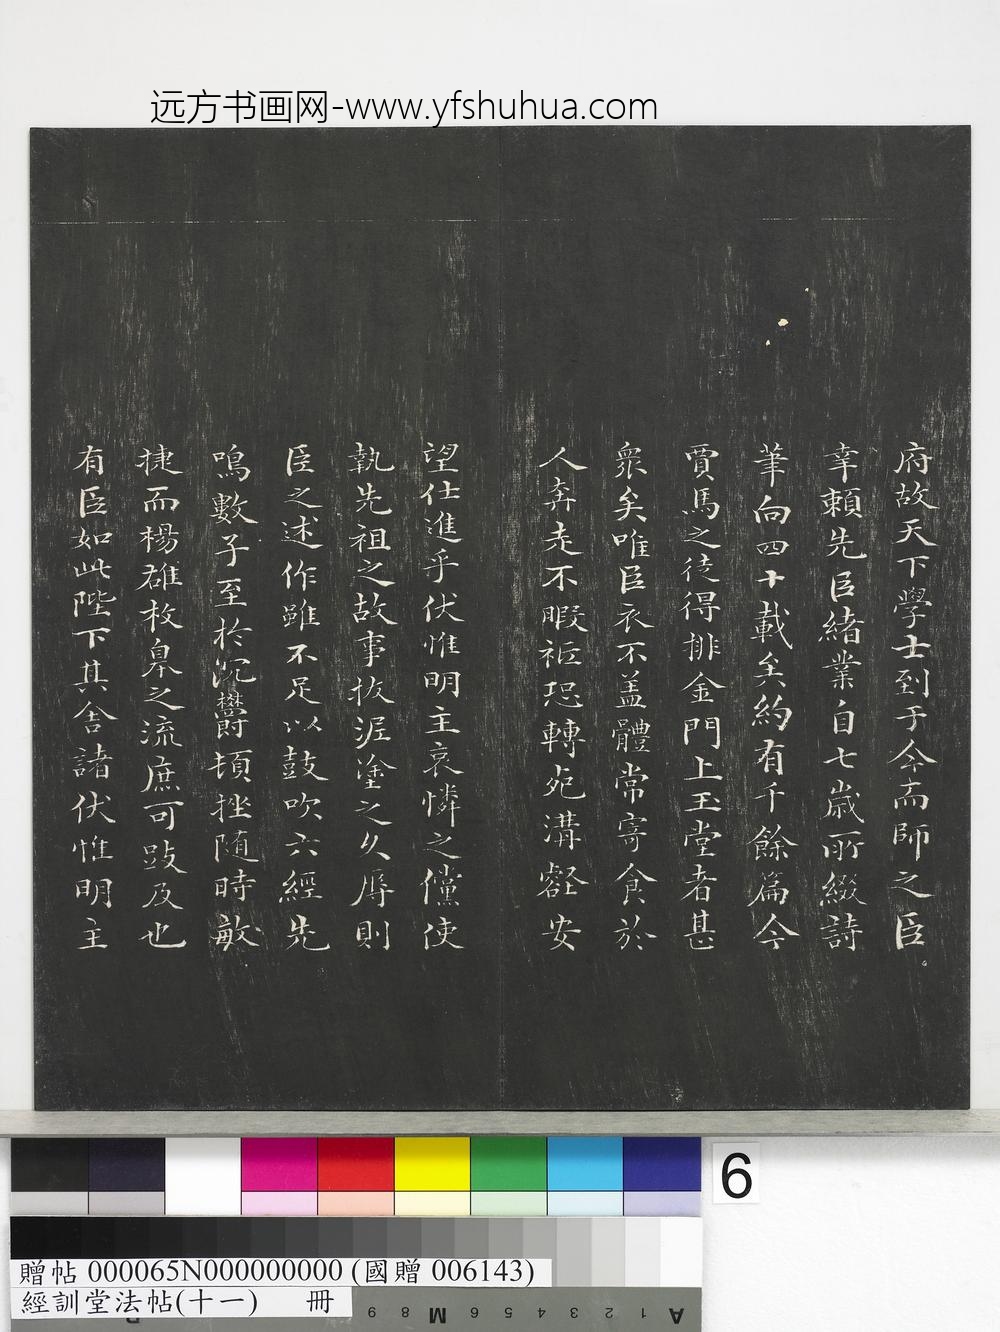 远方书画网-www.yfshuhua.com
府故天下學士到于今而師之臣
幸賴先臣緒業自七歲所綴詩
筆向四十載矣約有千餘篇今
賈馬之徒得排金門上玉堂者甚
衆矣唯臣衣不盖體常寄食於
人奔走不暇秪恐轉死溝壑安
望仕進乎伏惟明主哀憐之儻使
執先祖之故事拔泥塗之久辱則
臣之述作雖不足以鼓吹六經先
鳴數子至於沉欝頓挫随時敏
捷而楊雄枚皋之流庶可跂及也
有臣如此陛下其舍諸伏惟明主
6
贈帖 000065N000000000 (國贈 006143)
經訓堂法帖(十一) 冊
9 8 M 6 5 4 3 2 1 A